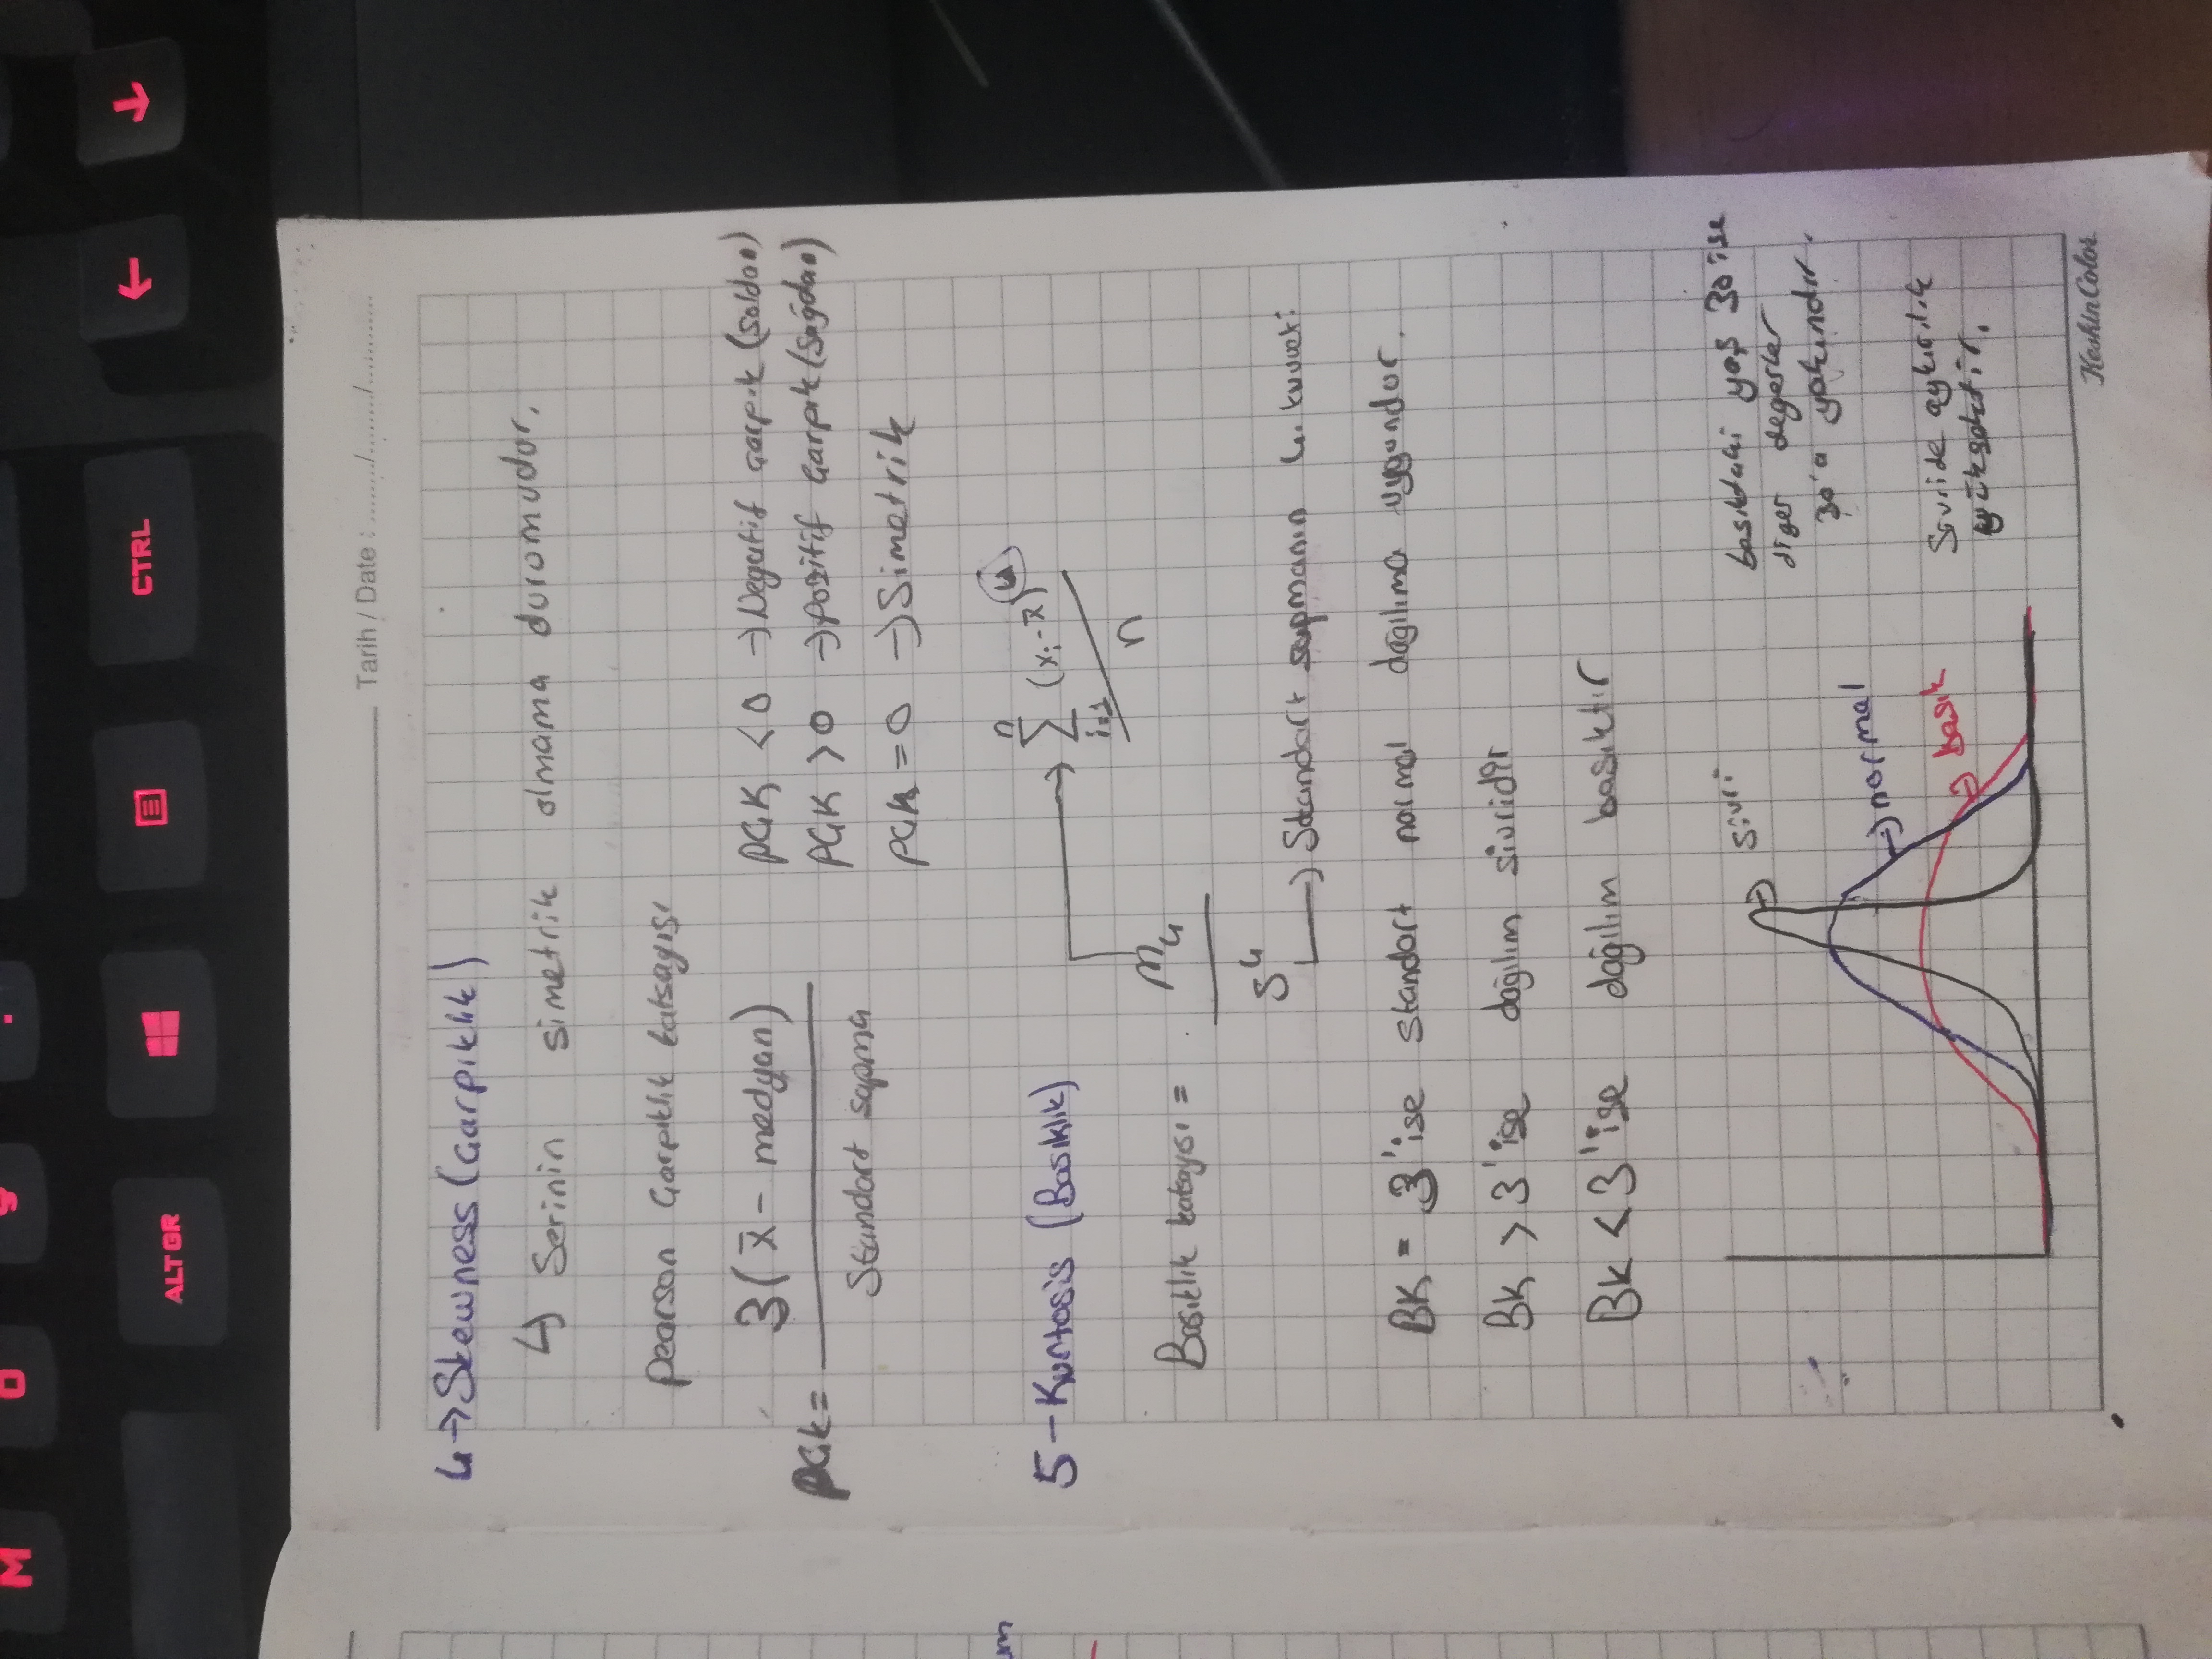 Tarih / Date : ......../......../............
4→Skewness (Çarpıklık)
↳ Serinin simetrik olmama durumudur.
Pearson Çarpıklık katsayısı
PÇK = 3(x̄ - medyan) / Standart sapma
PÇK < 0 → Negatif çarpık (soldan)
PÇK > 0 → Pozitif Çarpık (sağdan)
PÇK = 0 → Simetrik
5 - Kurtosis (Basıklık)
Basıklık katsayısı = m4 / s4
→ n ∑ i=1 (xi - x̄)4 / n
→ Standart sapmanın 4. kuvveti
BK = 3'ise standart normal dağılıma uygundur.
BK > 3'ise dağılım sivridir
BK < 3'ise dağılım basıktır
sivri
→ normal
→ basık
basıktaki yaş 30 ise
diğer değerler
30'a yakındır.
Sivride aykırılık
yüksektir.
KeskinColor
ALT GR
CTRL
M
O